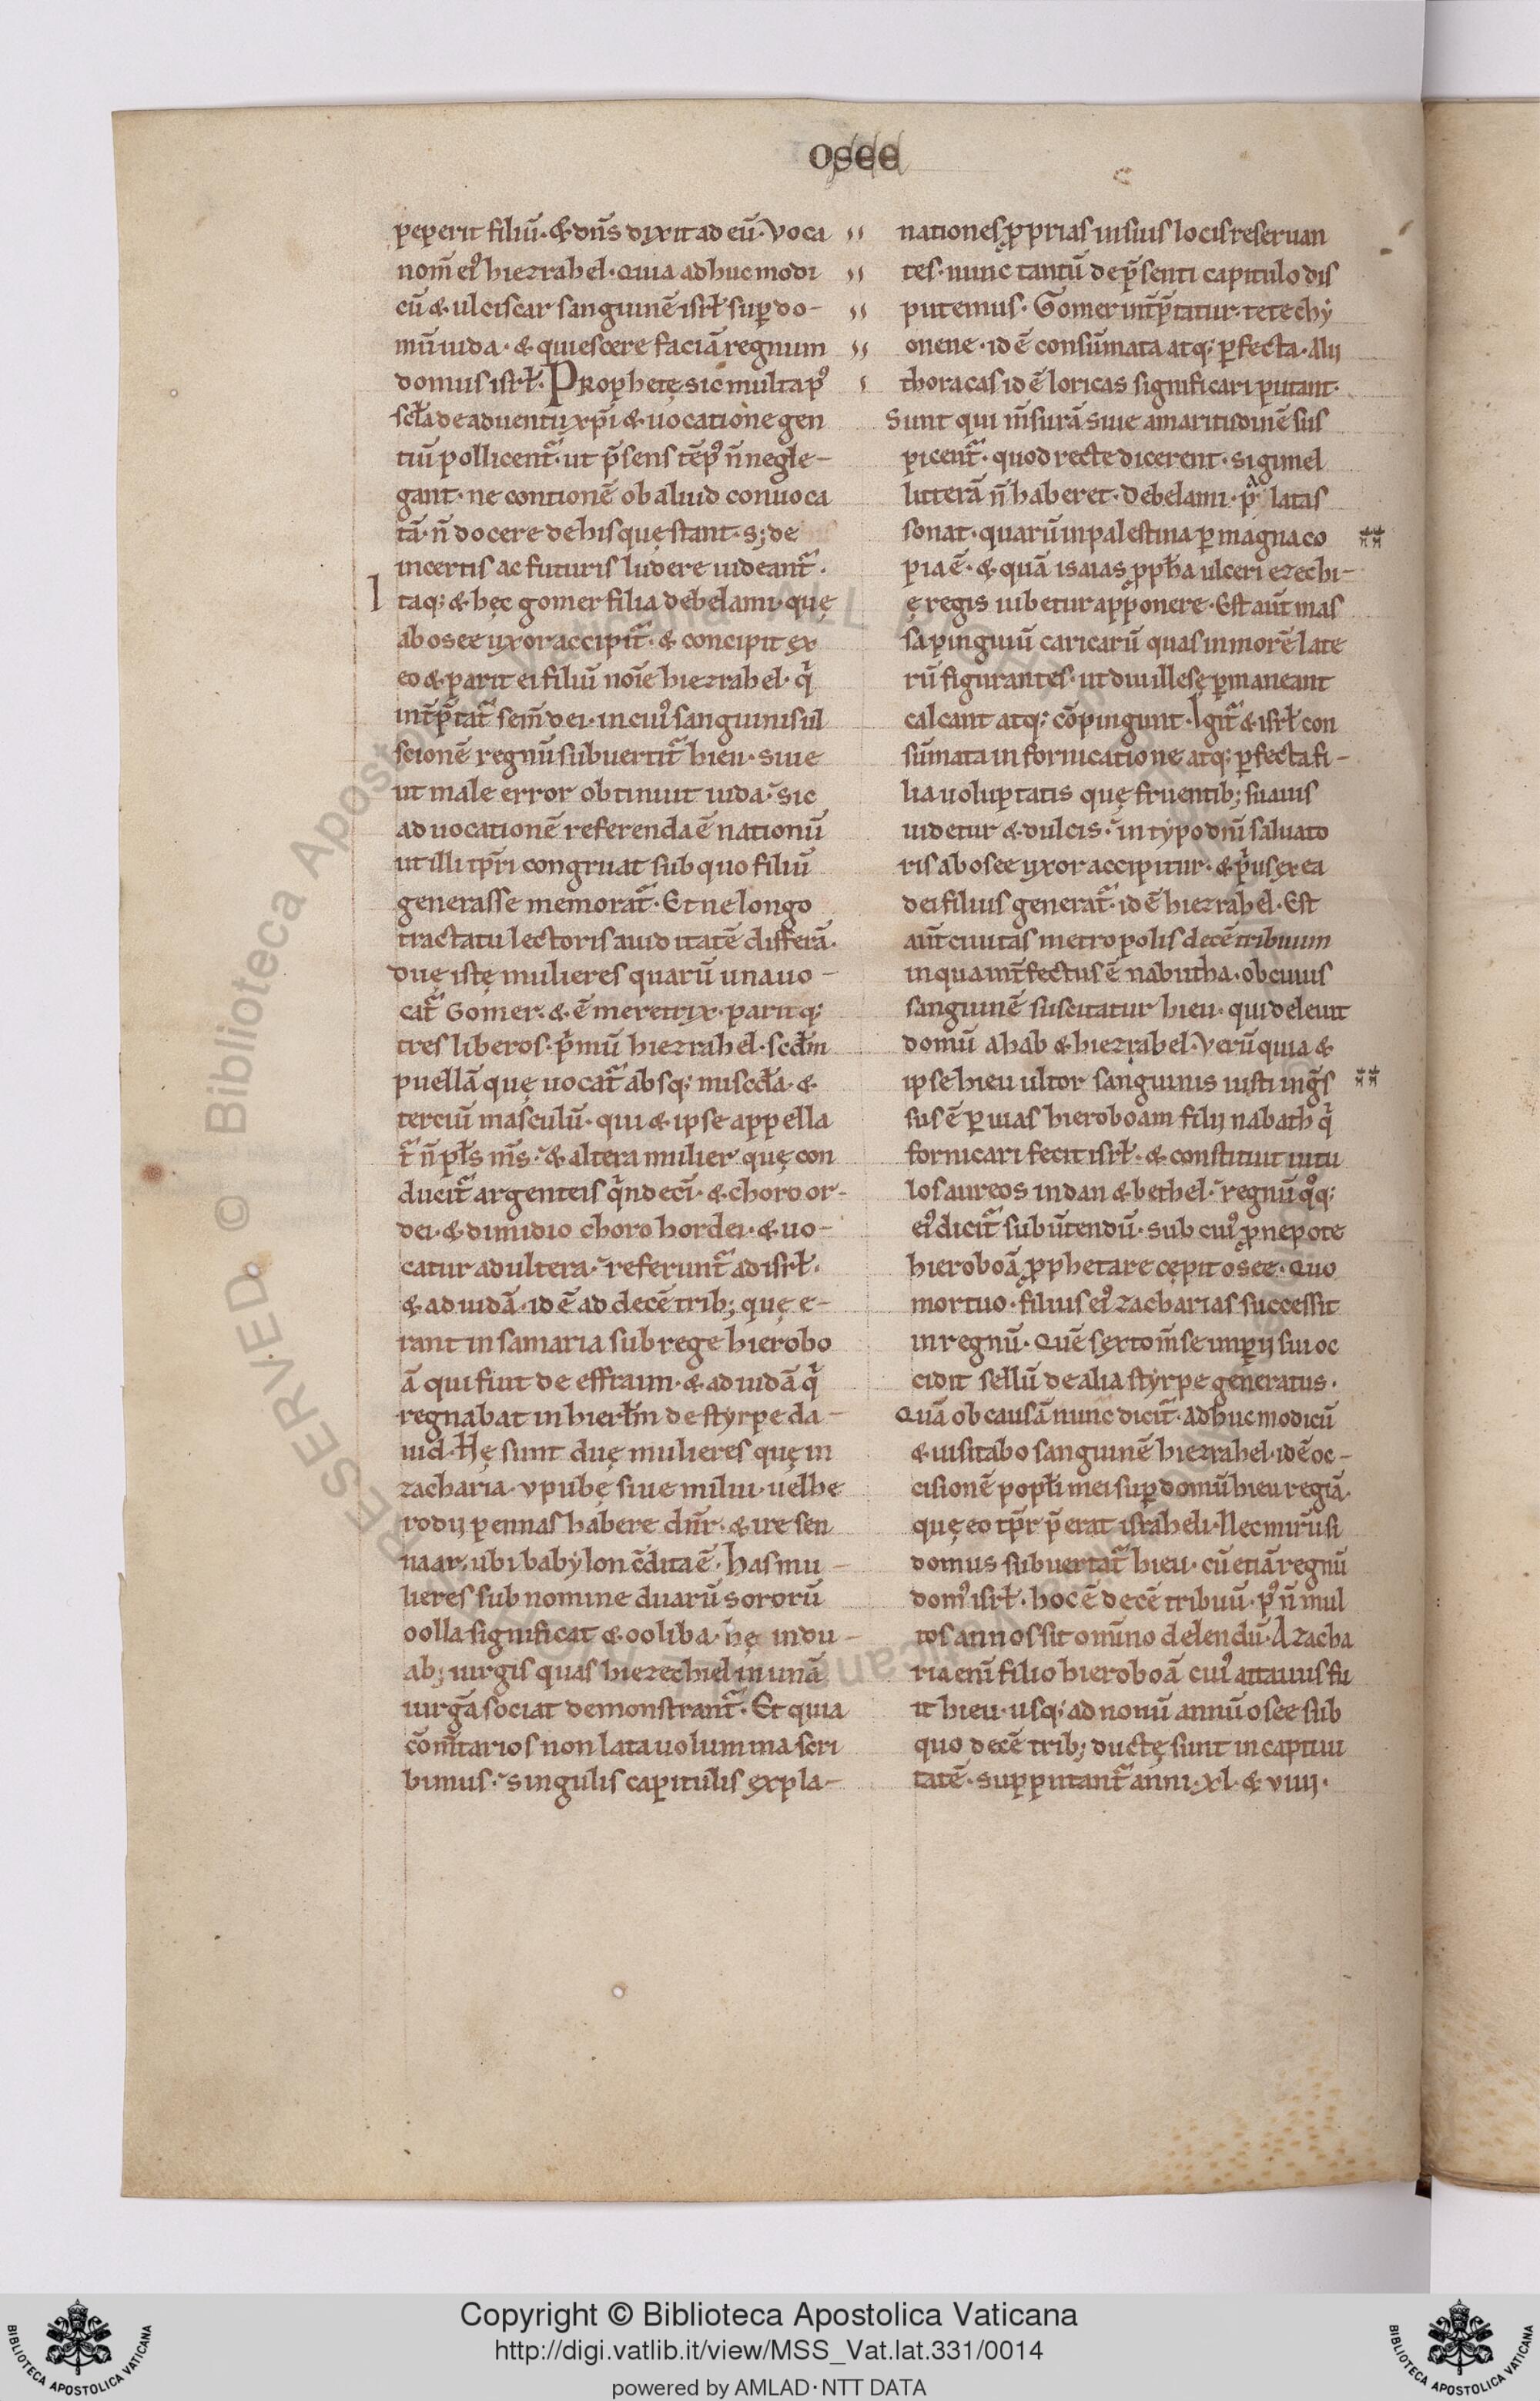 osee
peperit filiū· & dn̄s dixit ad eū· Voca
nom̄ eiꝰ hiezrahel· Quia adhuc modi
cū & ulciscar sanguinē isrł sup̱ do-
mū iuda· & quiescere faciā regnum
domus isrł· Prophetę sic multa pꝰ
scła de aduentu xp̄i & uocatione gen
tiū pollicent᷑· ut p̄sens tēpꝰ n̄ negle-
gant· ne contionē ob aliud conuoca
tā· n̄ docere de his quę stant· s; de
incertis ac futuris ludere uideant᷑·
Itaq; & hęc gomer filia debelaim· quę
ab osee uxor accipit᷑· & concipit ex
eo & parit ei filiū noīe hiezrahel· q̇
int̄p̄tat᷑ sem̄ dei· in cuiꝰ sanguinis ul
scionē regnū subuertit᷑ hieu· siue
ut male error obtinuit iuda· sic
ad uocationē referenda ē nationū
ut illi tp̄ri congruat sub quo filiū
generasse memorat᷑· Et ne longo
tractatu lectoris auiditatē differā·
duę istę mulieres quarū una uo-
cat᷑ Gomer· & ē meretrix· parit q;
tres liberos· p̄mū hiezrahel· scđm
puellā quę uocat᷑ absq; miscđa· &
terciū masculū· qui & ipse appella
t᷑ n̄ płs m̄s· & altera mulier quę con
ducit᷑ argenteis q̇ndecī· & choro or-
dei· & dimidio choro hordei· & uo-
catur adultera· referunt᷑ ad isrł·
& ad iudā· id ē ad decē trib; quę e-
rant in samaria sub rege hierobo
ā qui fuit de effraim· & ad iudā q̇
regnabat in hierłm de styrpe da-
uid· Hę sunt duę mulieres quę in
zacharia· vpubę siue milui· uel he
rodij pennas habere dn̄r· & ire sen
naar· ubi babẏlon c̄dita ē· has mu-
lieres sub nomine duarū sororū
oolla significat & ooliba· hę in du-
ab; uirgis quas hiezechiel in unā
uirgā sociat demonstrant᷑· Et quia
cōm̄tarios non lata uolumina scri
bimus· singulis capitulis expla-
nationes ꝓprias in suis locis reseruan
tes· nunc tantū de p̄senti capitulo dis
putemus· Gomer int̄p̄tatur· tetechẏ
onene· id ē consūmata atq; ꝑfecta· Alij
thoracas id ē loricas significari putant·
Sunt qui m̄surā siue amaritudinē sus
picent᷑· quod recte dicerent· si gimel
litterā n̄ haberet· Debelaim· p̄ latas
sonat· quarū in palestina ꝑmagna co
pia ē· & quā isaias ꝓpħa ulceri ezechi-
ę regis iubetur apponere· Est aut̄ mas
sa pinguiū caricarū quas in morē late
rū figurantes· ut diu illesę ꝑmaneant
calcant atq; cōpingunt· Igit᷑ & isrł con
sūmata in fornicatione atq; ꝑfecta fi-
lia uoluptatis quę fruentib; suauis
uidetur & dulcis· in tẏpo dnī saluato
ris ab osee uxor accipitur· & p̄us ex ea
dei filius generat᷑· id ē hiezrahel· Est
aut̄ ciuitas metropolis decē tribuum
in qua int̄fectus ē nabutha· ob cuius
sanguinē suscitatur hieu· qui deleuit
domū ahab & hiezabel· Verū quia &
ipse hieu ultor sanguinis iusti ing̃s
sus ē ꝑ uias hieroboam filij nabath q̇
fornicari fecit isrł· & constituit uitu
los aureos in dan & bethel· regnū q̊q;
eiꝰ dicit᷑ subūtendū· sub cuiꝰ ꝓnepote
hieroboā ꝓphetare cępit osee· Quo
mortuo· filius eiꝰ zacharias successit
in regnū· Quē sexto m̄se imꝑij sui oc
cidit sellū de alia stẏrpe generatus·
Quā ob causā nunc dicit᷑· Adhuc modicū
& uisitabo sanguinē hiezrahel· id ē oc-
cisionē popłi mei sup̱ domū hieu regiā·
quę eo tp̄r p̄erat israheli· Nec mirū si
domus subuertat᷑ hieu· cū etiā regnū
domꝰ isrł· hoc ē decē tribuū· pꝰ n̄ mul
tos annos sit omīno delendū· A zacha
ria enī filio hieroboā cuiꝰ attauus fu
it hieu· usq; ad nonū annū osee sub
quo decē trib; ductę sunt in captiui
tatē· supputant᷑ anni· xl· & viiij·
© Biblioteca Apostolica Vaticana ALL RIGHTS RESERVED
Copyright © Biblioteca Apostolica Vaticana
http://digi.vatlib.it/view/MSS_Vat.lat.331/0014
powered by AMLAD·NTT DATA
BIBLIOTECA APOSTOLICA VATICANA
BIBLIOTECA APOSTOLICA VATICANA